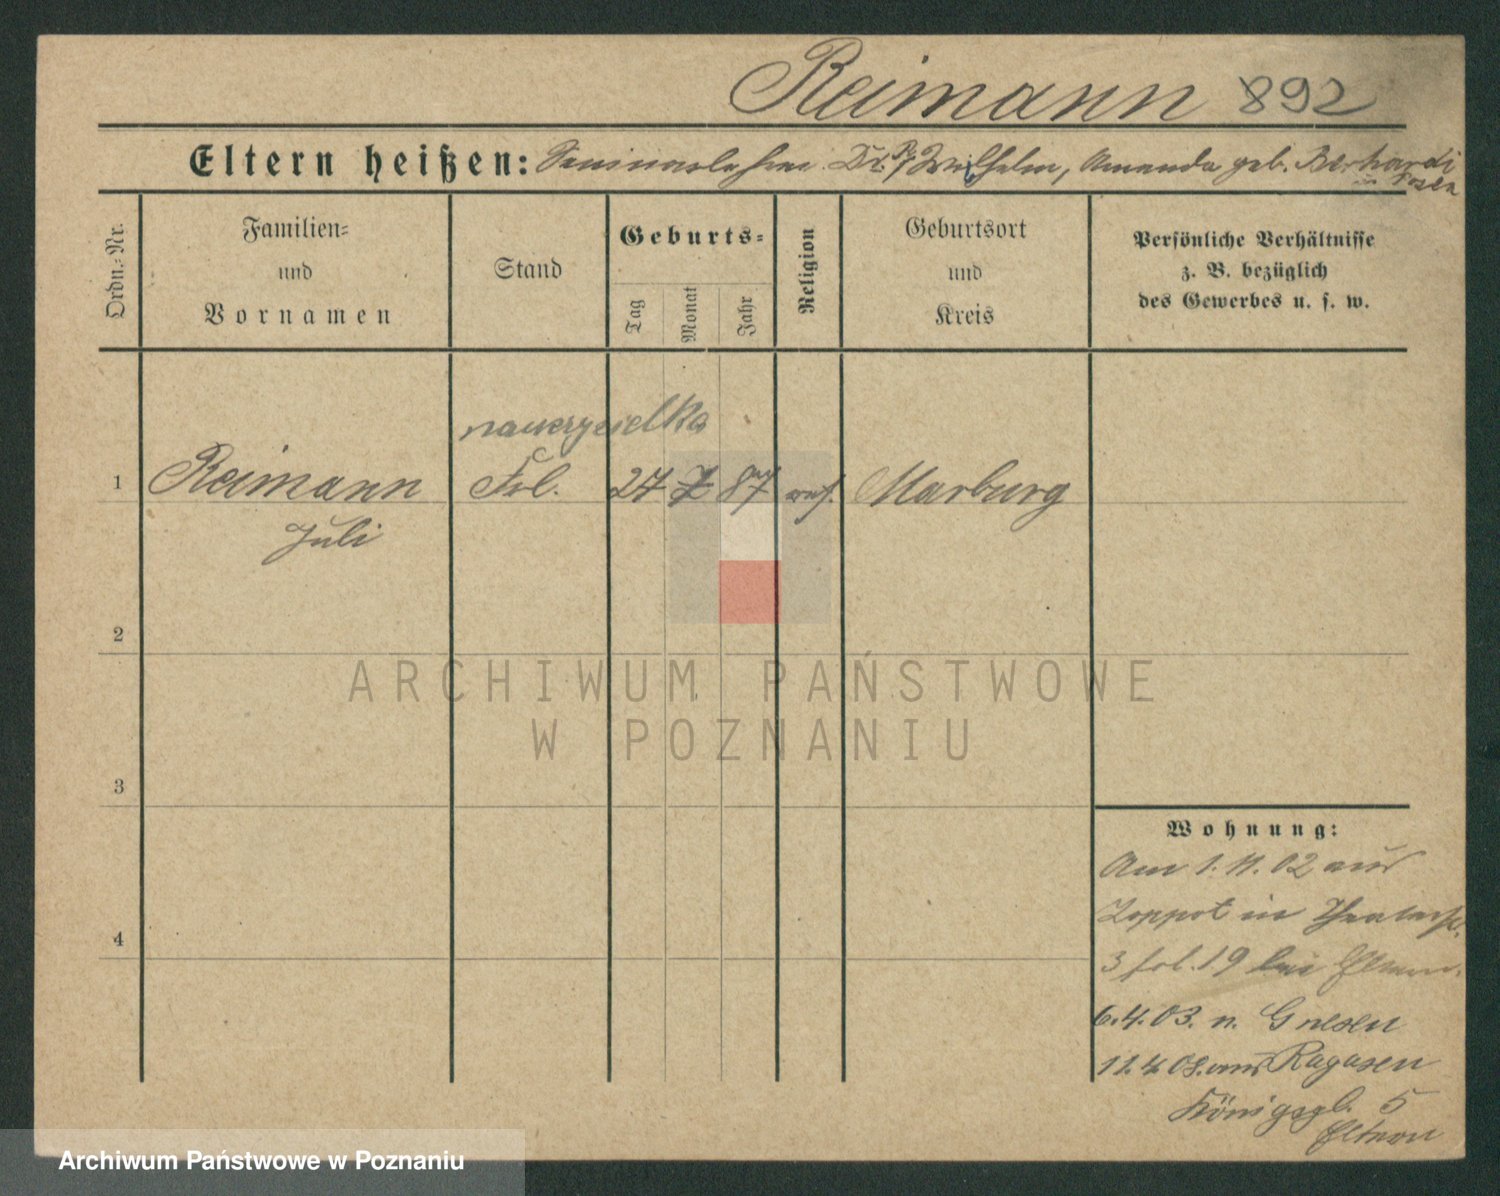 Reimann 892
Eltern heißen: Seminarlehrer Dr. Wilhelm, Amanda geb. Berhardi
Posen
Ordn.-Nr.
Familien-
und
Vornamen
Stand
Geburts-
Tag
Monat
Jahr
Religion
Geburtsort
und
Kreis
Persönliche Verhältnisse
z. B. bezüglich
des Gewerbes u. s. w.
nauczycielka
1 Reimann Frl. 27 7 87 ref. Marburg
Juli
2
ARCHIWUM PAŃSTWOWE
W POZNANIU
3
Wohnung:
Am 1.11.02 aus
Zoppot in
4
3 fol. 19 bei Eltern.
6.4.03. n. Gnesen
11.4.08. aus Ragasen
Königspl. 5
Eltern
Archiwum Państwowe w Poznaniu